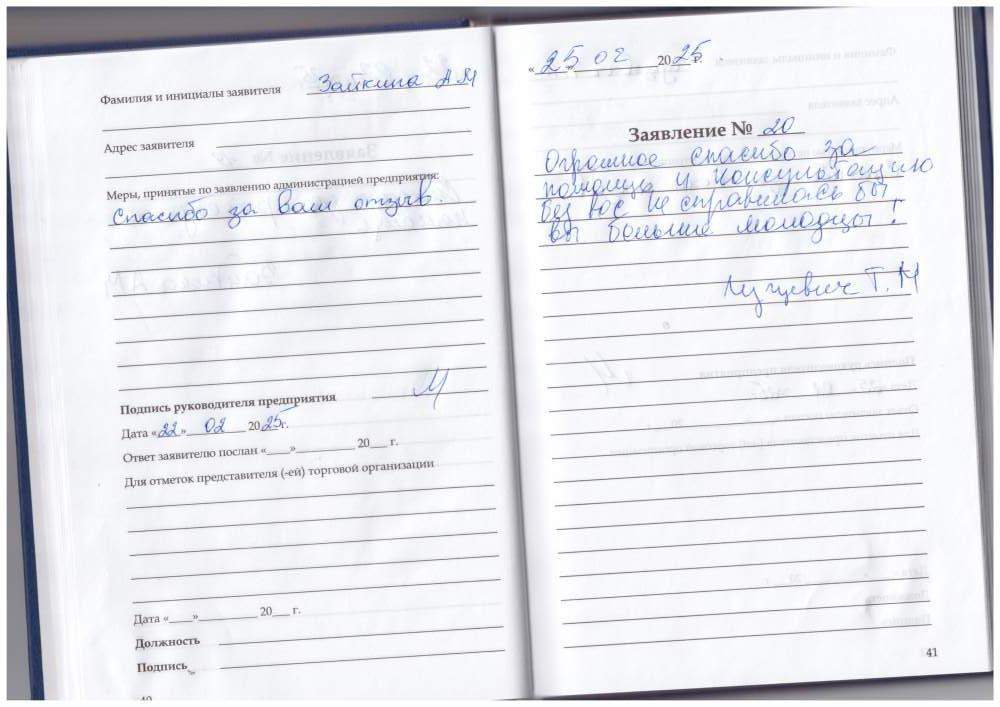 Фамилия и инициалы заявителя Зайкина А М
Адрес заявителя
Меры, принятые по заявлению администрацией предприятия:
Спасибо за Ваш отзыв.
Подпись руководителя предприятия
Дата «22» 02 2025 г.
Ответ заявителю послан «___»__________ 20___ г.
Для отметок представителя (-ей) торговой организации
Дата «____»__________ 20___ г.
Должность
Подпись
40
«25» 02 2025 г.
Заявление № 20
Огромное спасибо за
помощь и консультацию
без вас не справилась бы
вы большие молодцы!
Т. М
41